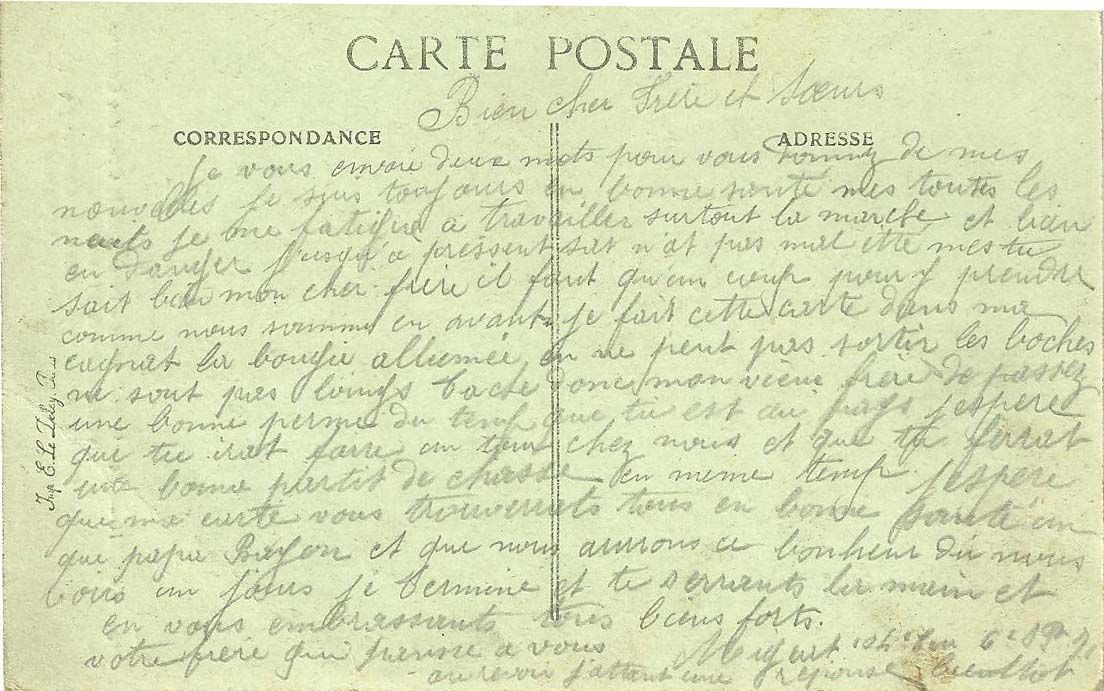 CARTE POSTALE
Bien cher Frere et Sœurs
CORRESPONDANCE
ADRESSE
Je vous envoie deux mots pour vous donner de mes
nouvelles je suis toujours en bonne sante mes toutes les
nuits je me fatigue a travailler surtout la marche, et bien
en danger jusqu'a pressent sat n'at pas mal ette mes tu
sait bien mon cher frère il faut qu'un coup pour y prendre
comme nous somme en avant je fait cette carte dans ma
cagnat la bougie allumée, on ne peut pas sortir les boches
ne sont pas loings tache donc mon vieux frère de passez
une bonne perme du temp que tu est au pays j'espere
que tu irat faire un tour chez nous et que tu ferat
une bonne partit de chasse en meme temp j'espere
que ma carte vous trouverrats tous en bonne sante
que papa et que nous aurrons ce bonheur du nous
voirs un jours je termine et te serrants la main et
en vous embrassants tous biens forts.
votre frère qui pensse a vous
au revoir j'attant une reponse bientot
Imp. E. Le Deley, Paris